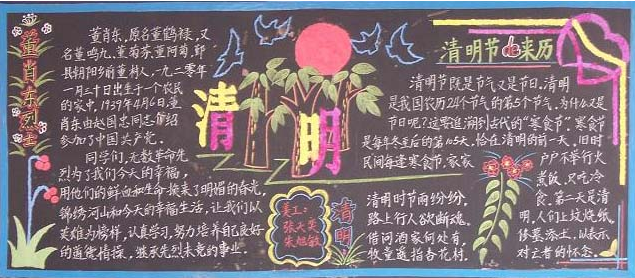 董肖东烈士
董肖东,原名董鹤禄,又
名董鸣九、董菊芬、董阿菊,鄞
县朝阳乡董村人,一九二零年
一月三十日出生于一个农民
的家中,1939年4月6日,董
肖东由赵国忠同志介绍
参加了中国共产党.
同学们,无数革命先
烈为了我们今天的幸福,
用他们的鲜血和生命换来了明媚的春光,
锦绣河山和今天的幸福生活,让我们以
英雄为榜样,认真学习,努力培养自己良好
的道德情操,继承先烈未竟的事业.
清明
美工:
张大奕
朱旭敏
清明
清明时节雨纷纷,
路上行人欲断魂.
借问酒家何处有,
牧童遥指杏花村.
清明节的来历
清明节既是节气又是节日.清明
是我国农历24个节气的第5个节气.为什么又是
节日呢?这要追溯到古代的“寒食节”.寒食节
是每年冬至后的第105天,恰在清明的前一天,旧时
民间每逢寒食节,家家
户户不举行火
煮饭,只吃冷
食.第二天是清
明,人们上坟烧纸
修墓添土,以表示
对亡者的怀念.